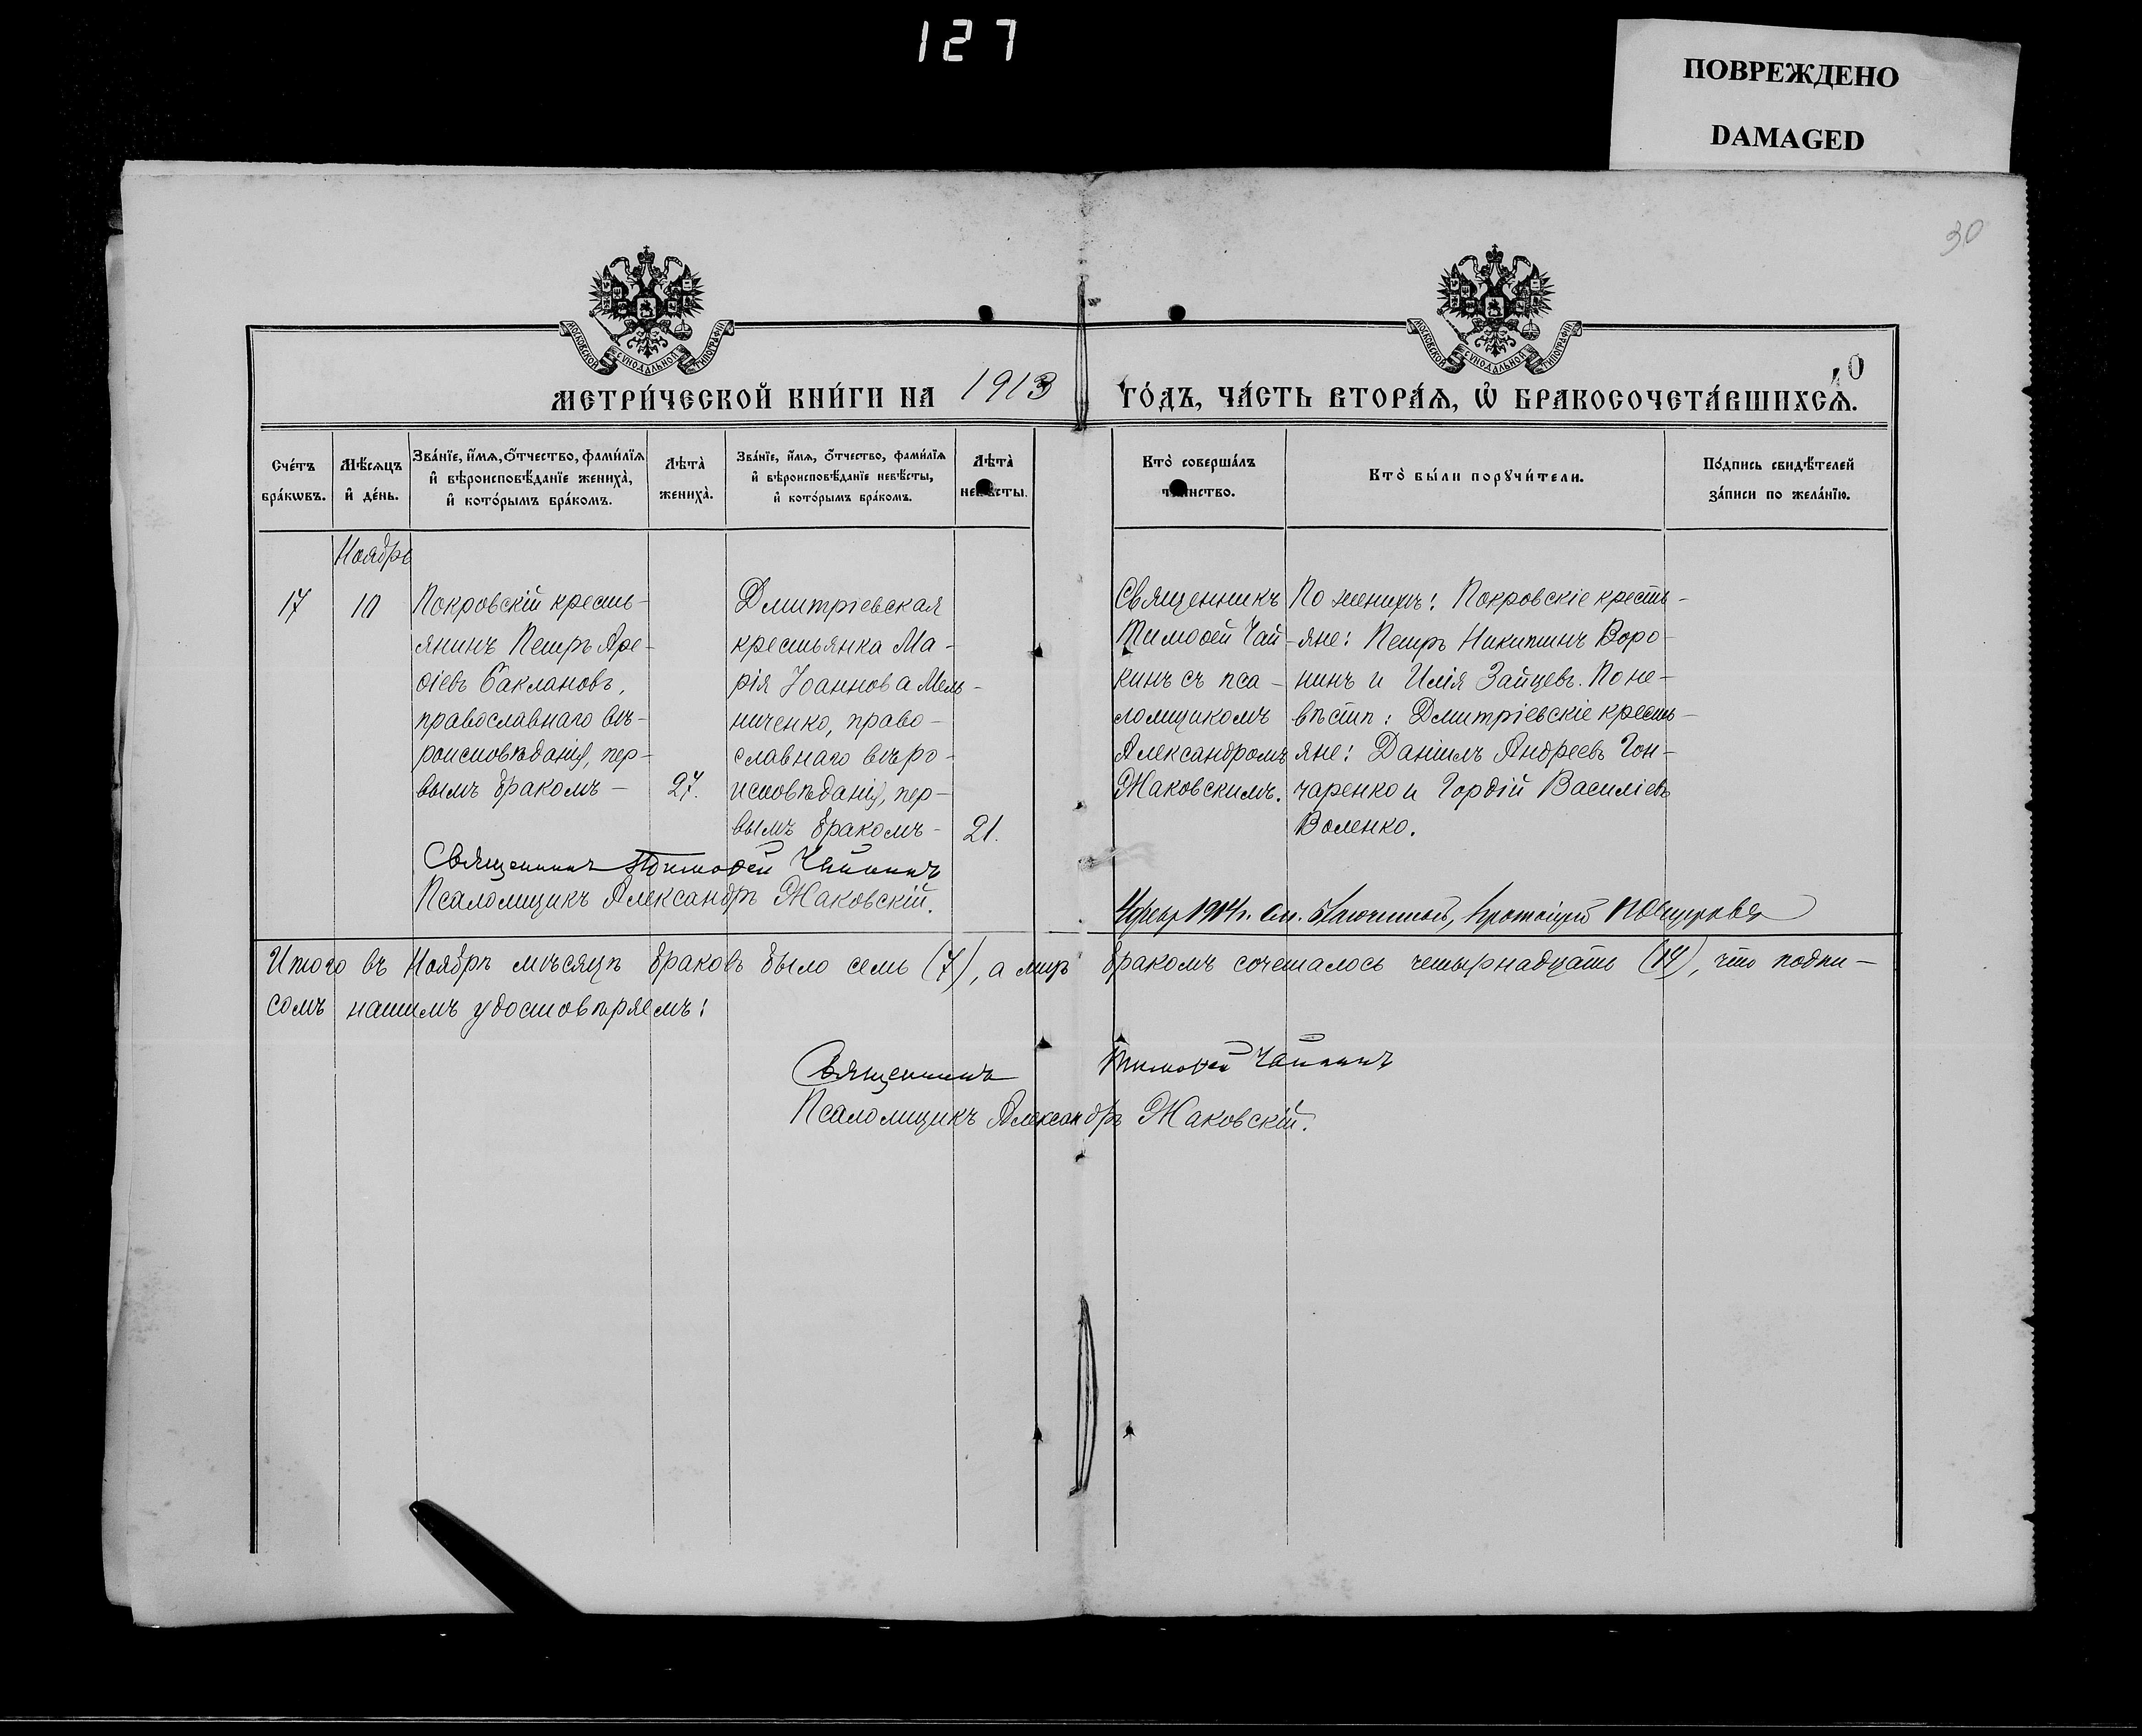 127
ПОВРЕЖДЕНО
DAMAGED
30
МОСКОВСКОЙ СѴНОДАЛЬНОЙ ТИПОГРАФІИ
МОСКОВСКОЙ СѴНОДАЛЬНОЙ ТИПОГРАФІИ
МЕТРИ́ЧЕСКОЙ КНИ́ГИ НА 1913 ГО́ДЪ, ЧА́СТЬ ВТОРА́Ѧ, Ѽ БРАКОСОЧЕТА́ВШИХСѦ.
Сче́тъ
бра́кѡвъ.
Мѣ́сѧцъ
и҆ де́нь.
Зва́нїе, и҆́мѧ, о҆́тчество, фами́лїѧ
и҆ вѣроисповѣ́данїе жениха̀,
и҆ кото́рымъ бра́комъ.
Лѣта̀
жениха̀.
Зва́нїе, и҆́мѧ, о҆́тчество, фами́лїѧ
и҆ вѣроисповѣ́данїе невѣ́сты,
и҆ кото́рымъ бра́комъ.
Лѣта̀
невѣ́сты.
Кто̀ соверша́лъ
та́инство.
Кто̀ бы́ли порꙋчи́тели.
По́дпись свидѣ́телей
за́писи по жела́нїю.
Ноябрь
17
10
Покровскій кресть-
янинъ Петръ Аре-
ѳіевъ Баклановъ,
православнаго вѣ-
роисповѣданія, пер-
вымъ бракомъ —
27.
Дмитріевская
крестьянка Ма-
рія Іоаннова Мель-
ниченко, право-
славнаго вѣро-
исповѣданія, пер-
вымъ бракомъ -
21.
Священникъ
Тимоѳей Чай-
кинъ съ пса-
ломщикомъ
Александромъ
Жаковскимъ.
По женихѣ: Покровскіе кресть-
яне: Петръ Никитинъ Воро-
нинъ и Илія Зайцевъ. По не-
вѣстѣ: Дмитріевскіе кресть-
яне: Даніилъ Андреевъ Гон-
чаренко и Гордій Василіевъ
Воленко.
Священникъ Тимоѳей Чайкинъ
Псаломщикъ Александръ Жаковскій.
1914 г.
Итого въ Ноябрѣ мѣсяцѣ браковъ было семь (7), а лицъ бракомъ сочеталось четырнадцать (14), что подпи-
сомъ нашимъ удостовѣряемъ:
Священникъ Тимоѳей Чайкинъ
Псаломщикъ Александръ Жаковскій.